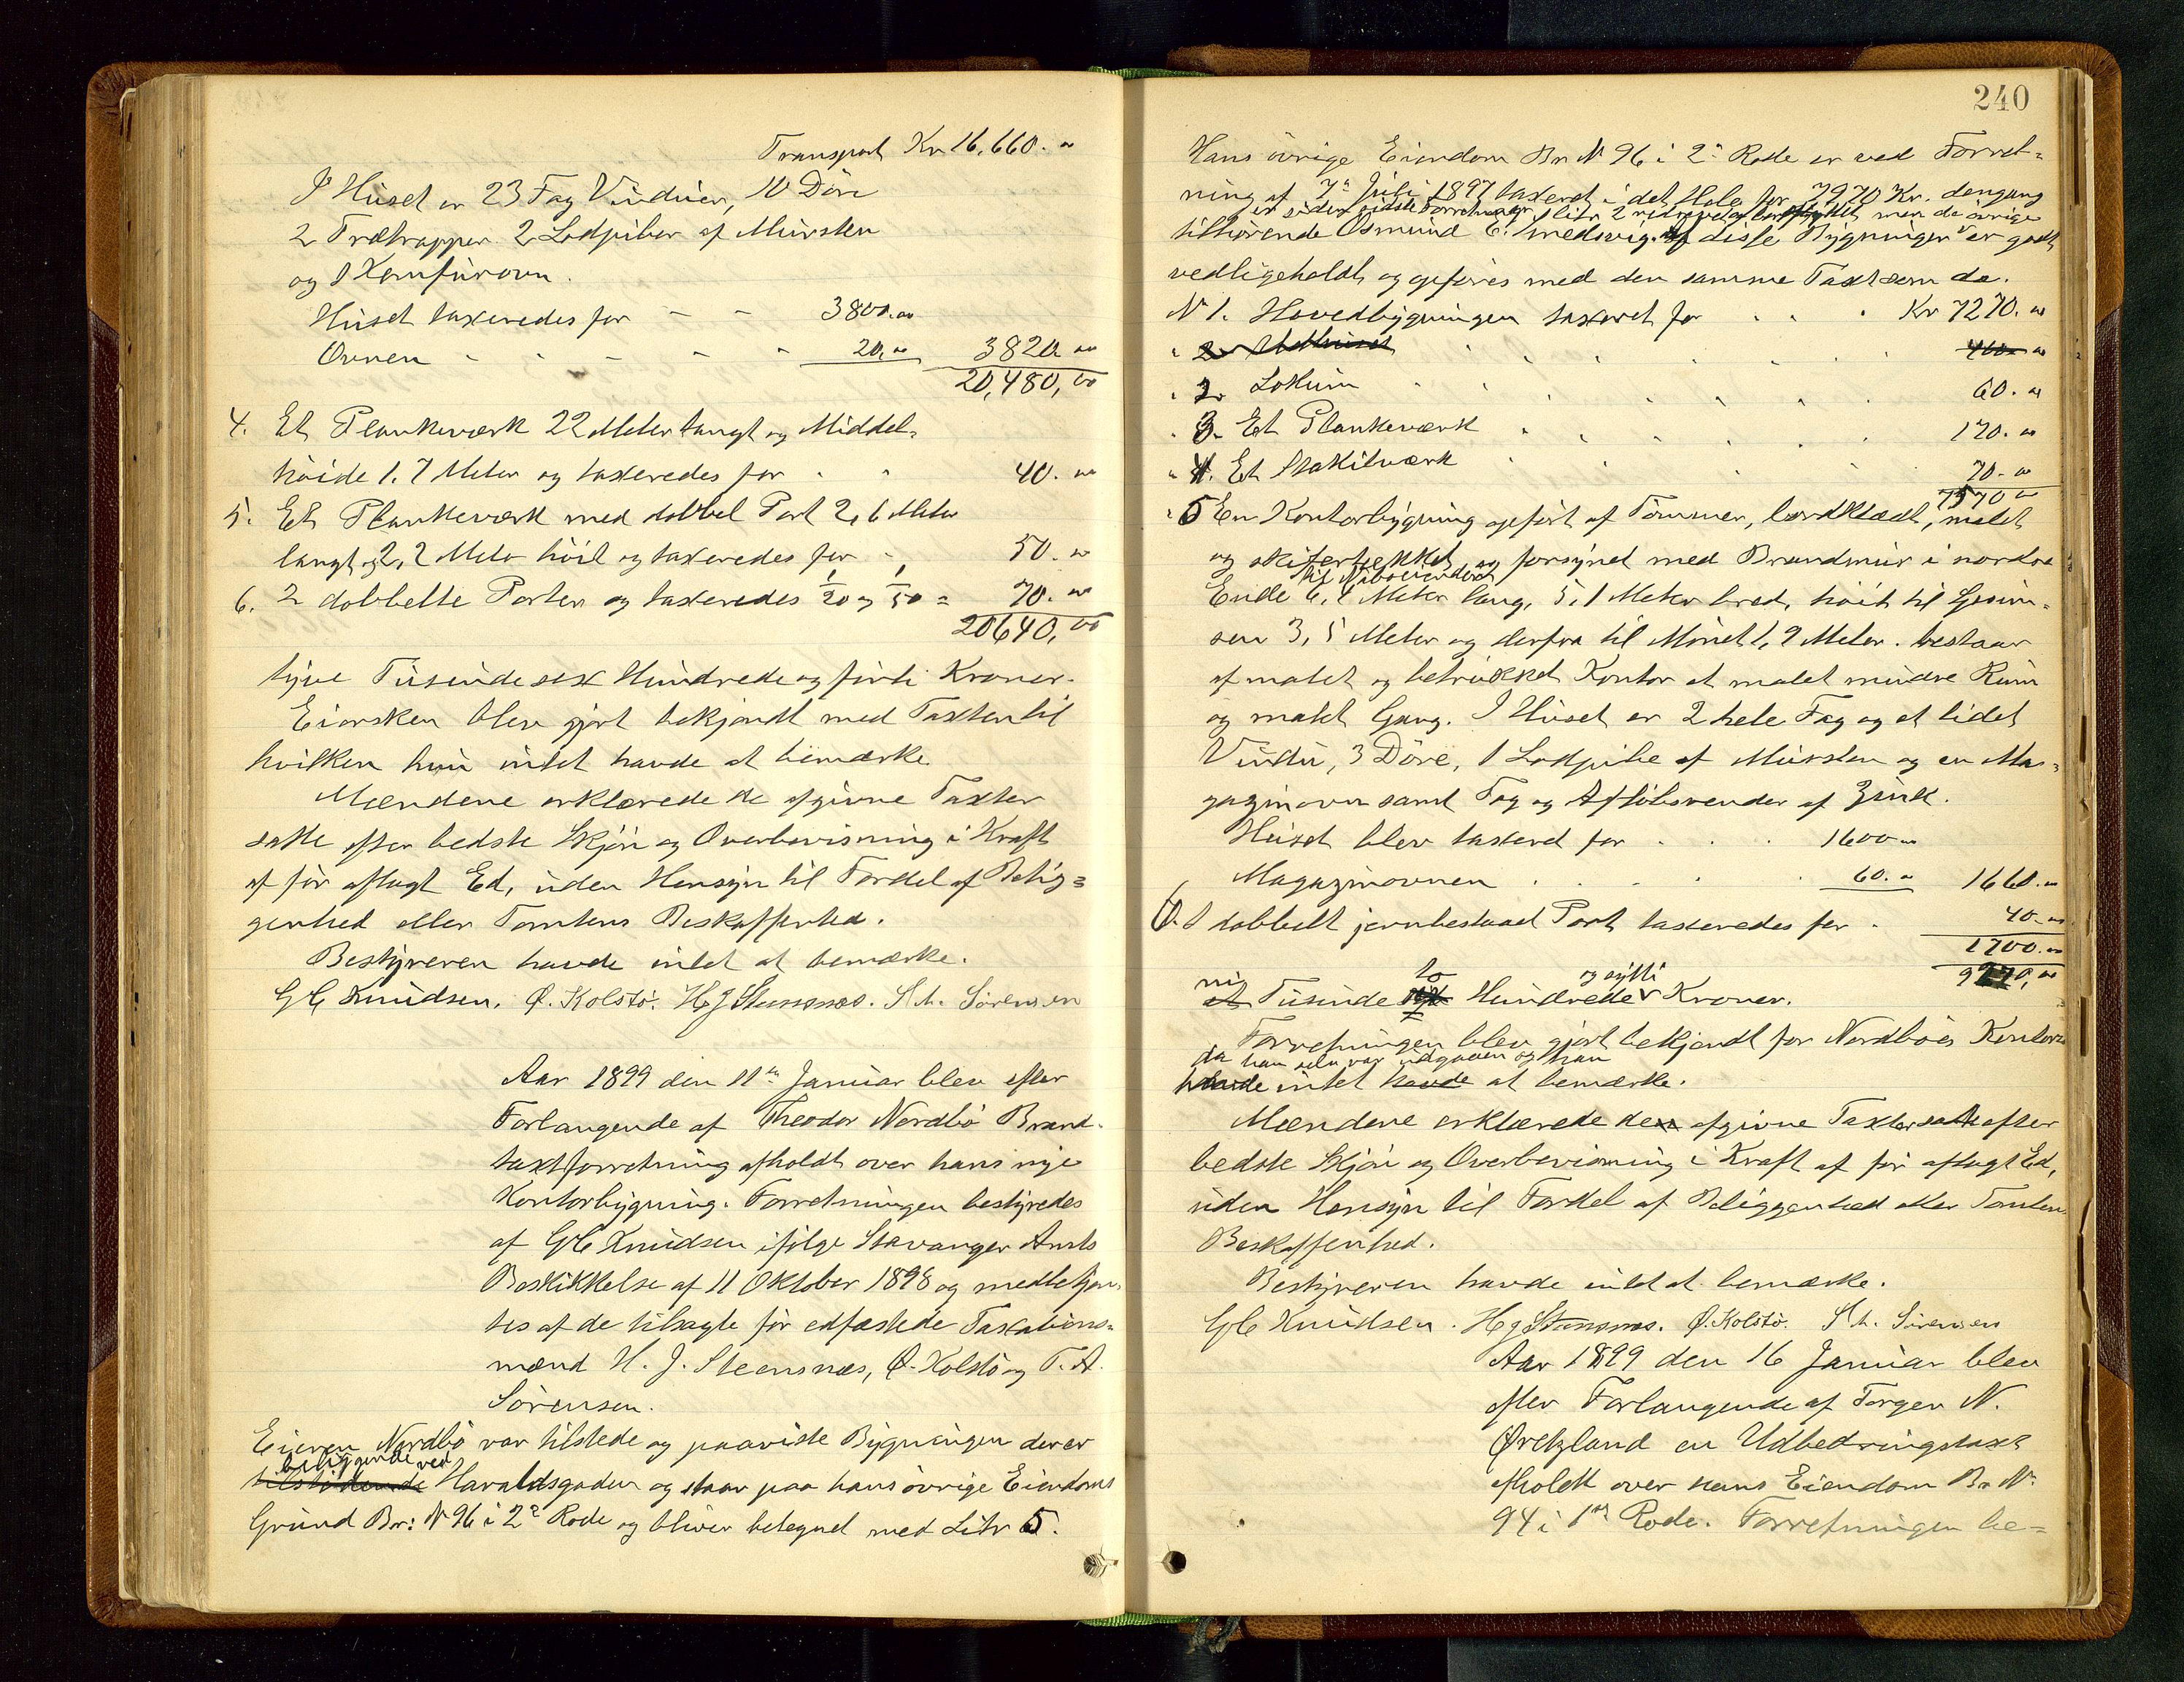 Transport Kr 16,660.00
I Huset er 23 Fag Vinduer, 10 Döre
2 Trætrapper 2 Lodpiber af Mursten
og 1 Komfurovn.
Huset taxeredes for - - 3800.00
Ovnen - - - - - 20.00 3820.00
20,480,00
4. Et Plankeværk 22 Meter langt og Middel-
höide 1.7 Meter og taxeredes for - - 40.00
5. Et Plankeværk med dobbel Port 2,6 Meter
langt og 2,2 Meter höit og taxeredes for - 50.00
6. 2 dobbelte Porter og taxeredes 1/20 og 1/50 = 70.00
20640,00
tyve Tusinde sex Hundrede og förti Kroner.
Eiersken blev gjort bekjendt med Taxten til
hvilken hun intet havde at bemærke.
Mændene erklærede de afgivne Taxter
satte efter bedste Skjön og Overbevisning i Kraft
af för aflagt Ed, uden Hensyn til Fordel af Belig-
genhed eller Tomtens Beskaffenhed.
Bestyreren havde intet at bemærke.
G C Knudsen. O. Kolstö. H J Steensnæs. S. A. Sörensen
Aar 1899 den 11te Januar blev efter
Forlangende af Theodor Nordbö Brand-
taxtforretning afholdt over hans nye
Kontorbygning. Forretningen bestyredes
af G C Knudsen ifölge Stavanger Amts
Beskikkelse af 11 Oktober 1898 og medbetjen-
tes af de tilsagte för edfæstede Taxations-
mænd H. J. Steensnæs, O. Kolstö og T. A.
Sörensen.
Eieren Nordbö var tilstede og paaviste Bygningen der er
beliggende ved
tilstödende Haraldsgaden og staar paa hans övrige Eiendoms
Grund Br: N 96 i 2n Rode og bliver betegnet med Litr 5.
240
Hans övrige Eiendom Br N 96 i 2n Rode er ved Forret-
ning af 7de Juli 1897 taxeret i det Hele for 7970 Kr. dengang
er siden sidste Forretning Litr 2 nedrevet og men de övrige
tilhörende Osmund E. Smedsvig. Af disse Bygninger er godt
vedligeholdt og opföres med den samme Taxt som da.
N 1. Hovedbygningen taxeret for . . . Kr 7270.00
" 2 Uthuset 460.00
" 2 Lokum 60.00
" 3. Et Plankeværk 170.00
" 4. Et Stakitværk 70.00
7570.00
" 5 En Kontorbygning opfört af Tömmer, bordklædt, malet
og skifertækket og forsynet med Brandmur i nordre
til Naboeiendom
Ende 6,1 Meter lang, 5,1 Meter bred, höit til Gesim-
sen 3,5 Meter og derfra til Mönet 1,9 Meter. bestaar
af malet og betrukket Kontor et malet mindre Rum
og malet Gang. I Huset er 2 hele Fag og et lidet
Vindu, 3 Döre, 1 Lodpibe af Mursten og en Ma-
gazinovn samt Tag og Aflöbsrender af Zink.
Huset blev taxeret for . . . 1600.00
Magazinovnen . . . . . 60.00 1660.00
6. 1 dobbelt jernbeslaaet Port taxeredes for . 40.00
1700.00
9270,00
ni to og sytti
et Tusinde syv Hundrede Kroner.
Forretningen blev gjort bekjendt for Nordböes Kontor
da han selv var udgaaen og han
havde intet havde at bemærke.
Mændene erklærede den afgivne Taxter satte efter
bedste Skjön og Overbevisning i Kraft af för aflagt Ed,
uden Hensyn til Fordel af Beliggenhed eller Tomtens
Beskaffenhed.
Bestyreren havde intet at bemærke.
G C Knudsen. H J Steensnæs. O. Kolstö. S A. Sörensen
Aar 1899 den 16 Januar blev
efter Forlangende af Torger N.
Øretzland en Udbedringstaxt
afholdt over hans Eiendom Br N.
94 i 1ste Rode. Forretningen be-